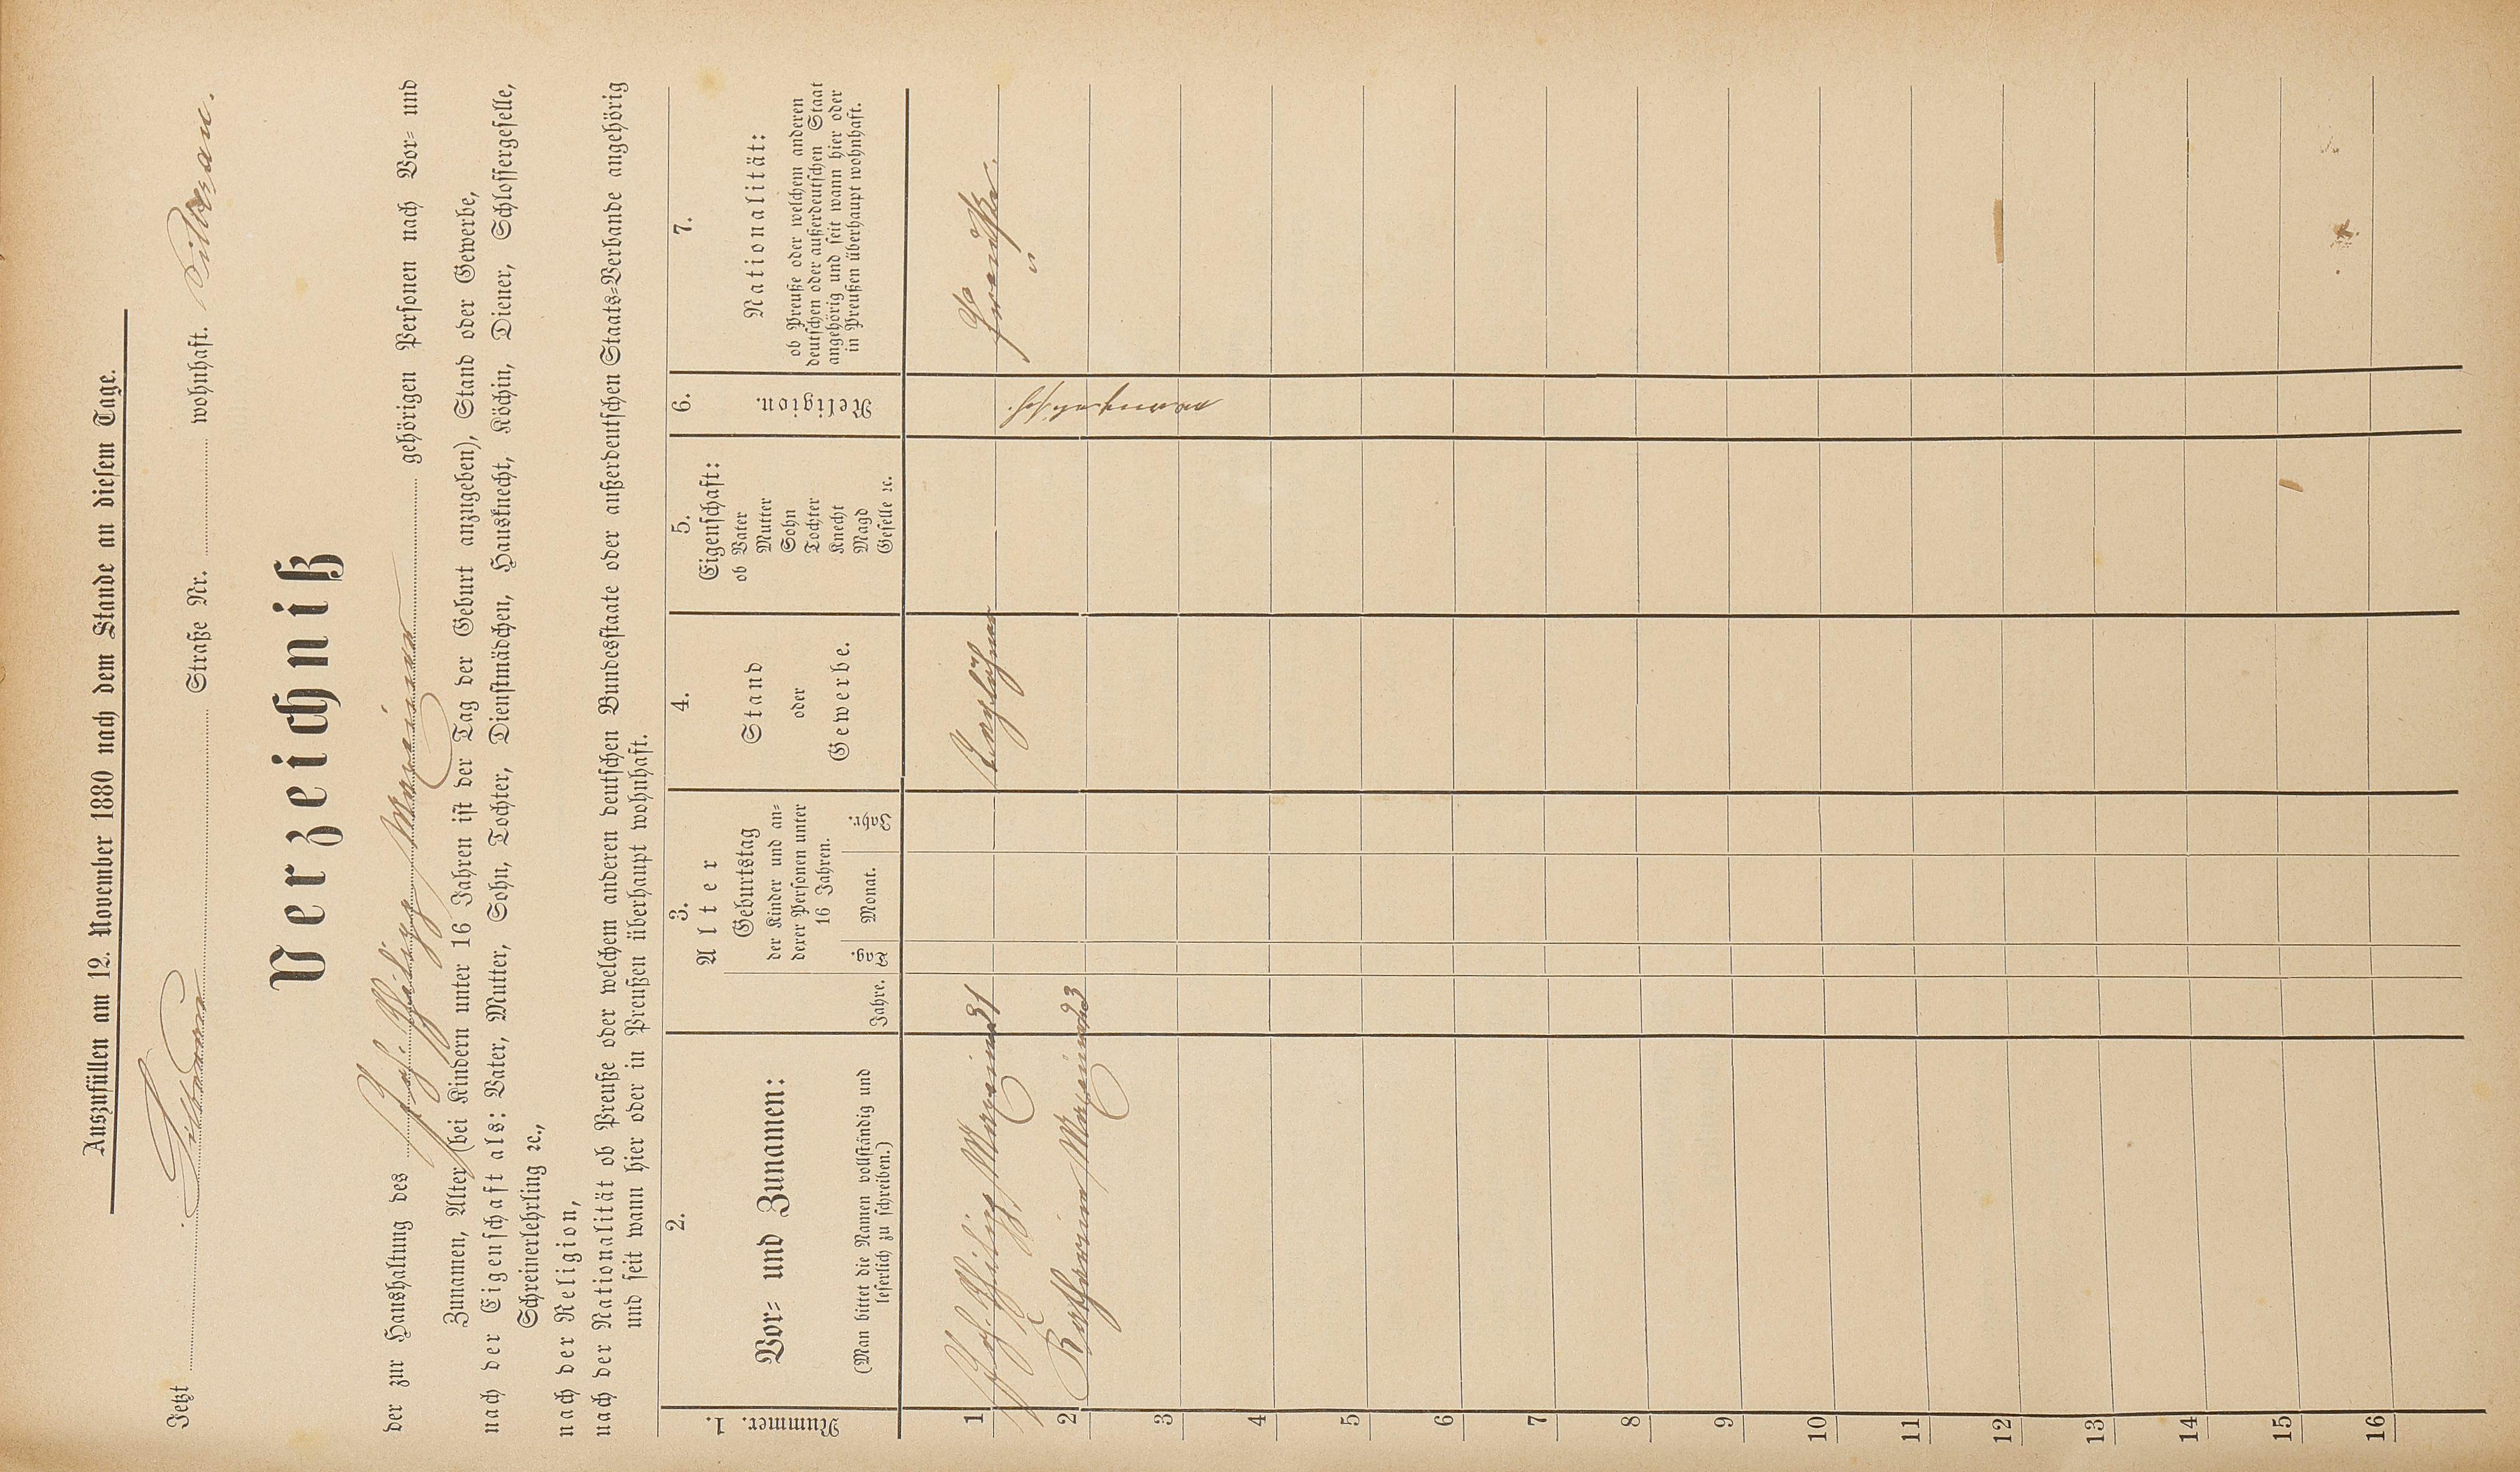 Auszufüllen am 12. November 1880 nach dem Stande an diesem Tage.
Jetzt Straße Nr. wohnhaft.
Verzeichniß
der zur Haushaltung des Joh. Philipp gehörigen Personen nach Vor- und
Zunamen, Alter (bei Kindern unter 16 Jahren ist der Tag der Geburt anzugeben), Stand oder Gewerbe,
nach der Eigenschaft als: Vater, Mutter, Sohn, Tochter, Dienstmädchen, Hausknecht, Köchin, Diener, Schlossergeselle,
Schreinerlehrling ꝛc.,
nach der Religion,
nach der Nationalität ob Preuße oder welchem anderen deutschen Bundesstaate oder außerdeutschen Staats-Verbande angehörig
und seit wann hier oder in Preußen überhaupt wohnhaft.
1.
Nummer.
2.
Vor- und Zunamen:
(Man bittet die Namen vollständig und
leserlich zu schreiben.)
3.
Alter
Jahre.
Geburtstag
der Kinder und an-
derer Personen unter
16 Jahren.
Tag.
Monat.
Jahr.
4.
Stand
oder
Gewerbe.
5.
Eigenschaft:
ob Vater
Mutter
Sohn
Tochter
Knecht
Magd
Geselle ꝛc.
6.
Religion.
7.
Nationalität:
ob Preuße oder welchem anderen
deutschen oder außerdeutschen Staat
angehörig und seit wann hier oder
in Preußen überhaupt wohnhaft.
1 Joh. Philipp 31 Taglöhner Preuße
2 Katharina 23 evangelisch.
3
4
5
6
7
8
9
10
11
12
13
14
15
16